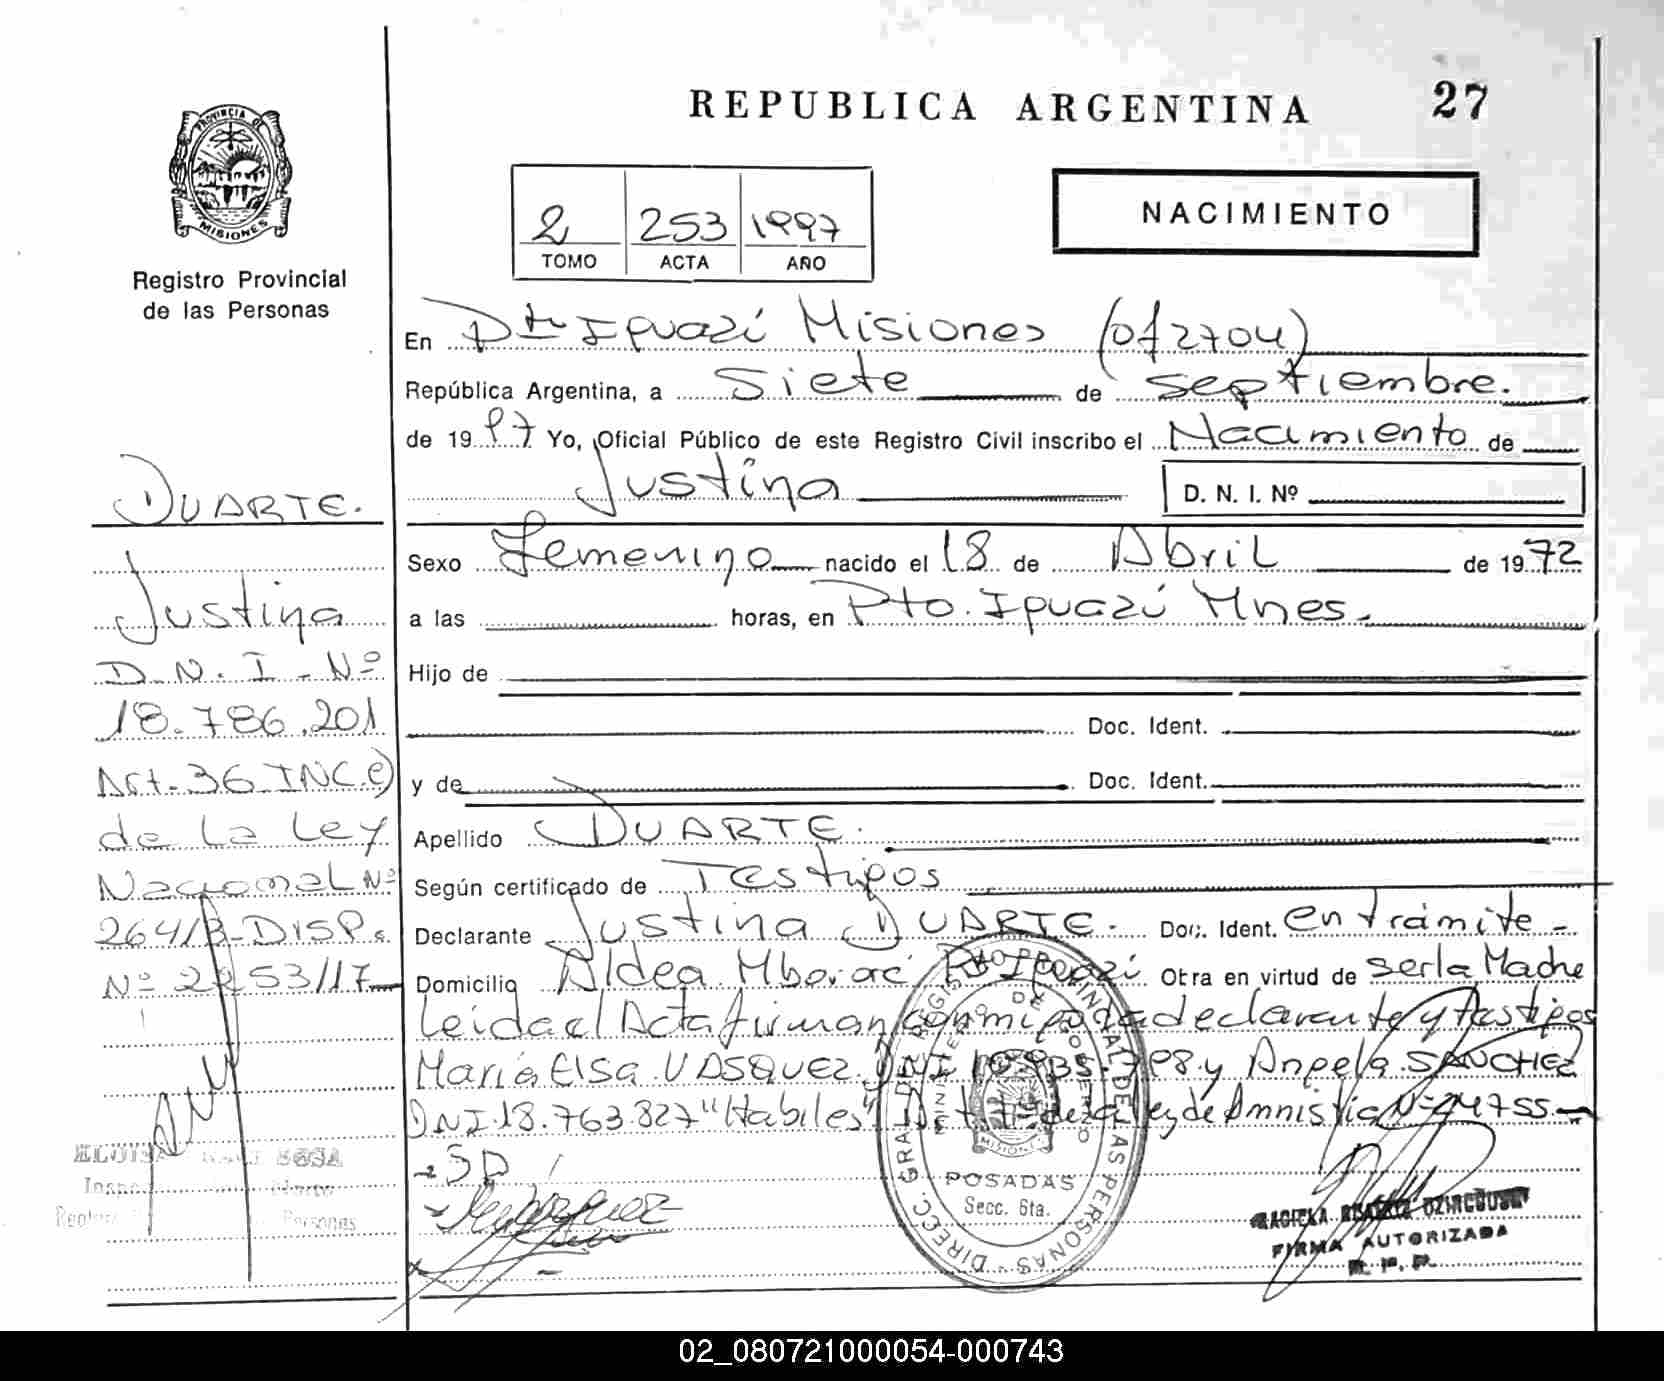 REPUBLICA ARGENTINA 27
PROVINCIA DE MISIONES
Registro Provincial
de las Personas
2 253 1997
TOMO ACTA AÑO
NACIMIENTO
En Pto Iguazú Misiones (of 2704)
República Argentina, a siete de septiembre.
de 1997 Yo, Oficial Público de este Registro Civil inscribo el Nacimiento de
Justina D. N. I. Nº
Sexo Femenino nacido el 18 de Abril de 1972
a las horas, en Pto. Iguazú Mnes.
Hijo de
Doc. Ident.
y de Doc. Ident.
Apellido DUARTE.
Según certificado de Testigos
Declarante Justina DUARTE. Doc. Ident. en trámite
Domicilio Aldea Mbororé Pto Iguazú Otra en virtud de ser la Madre
Leida el Acta firman conmigo la declarante y testigos
María Elsa VASQUEZ. DNI 798 y Angela SANCHEZ
DNI. 18.763.827 "Habiles" de la Ley de Amnistia Nº 24755.
DUARTE.
Justina
D.N.I. Nº
18.786.201
Art. 36 INC e)
de La Ley
Nacional Nº
26413-DISP.
Nº 2253/17
DIRECC. GRAL. DEL REGISTRO PROVINCIAL DE LAS PERSONAS
MINISTERIO DE GOBIERNO
MISIONES
POSADAS
Secc. 6ta.
FIRMA AUTORIZADA
R. P. P.
02_080721000054-000743